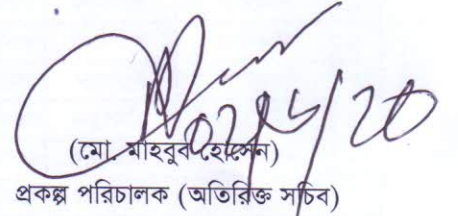 (মো. মাহবুব হোসেন)
প্রকল্প পরিচালক (অতিরিক্ত সচিব)